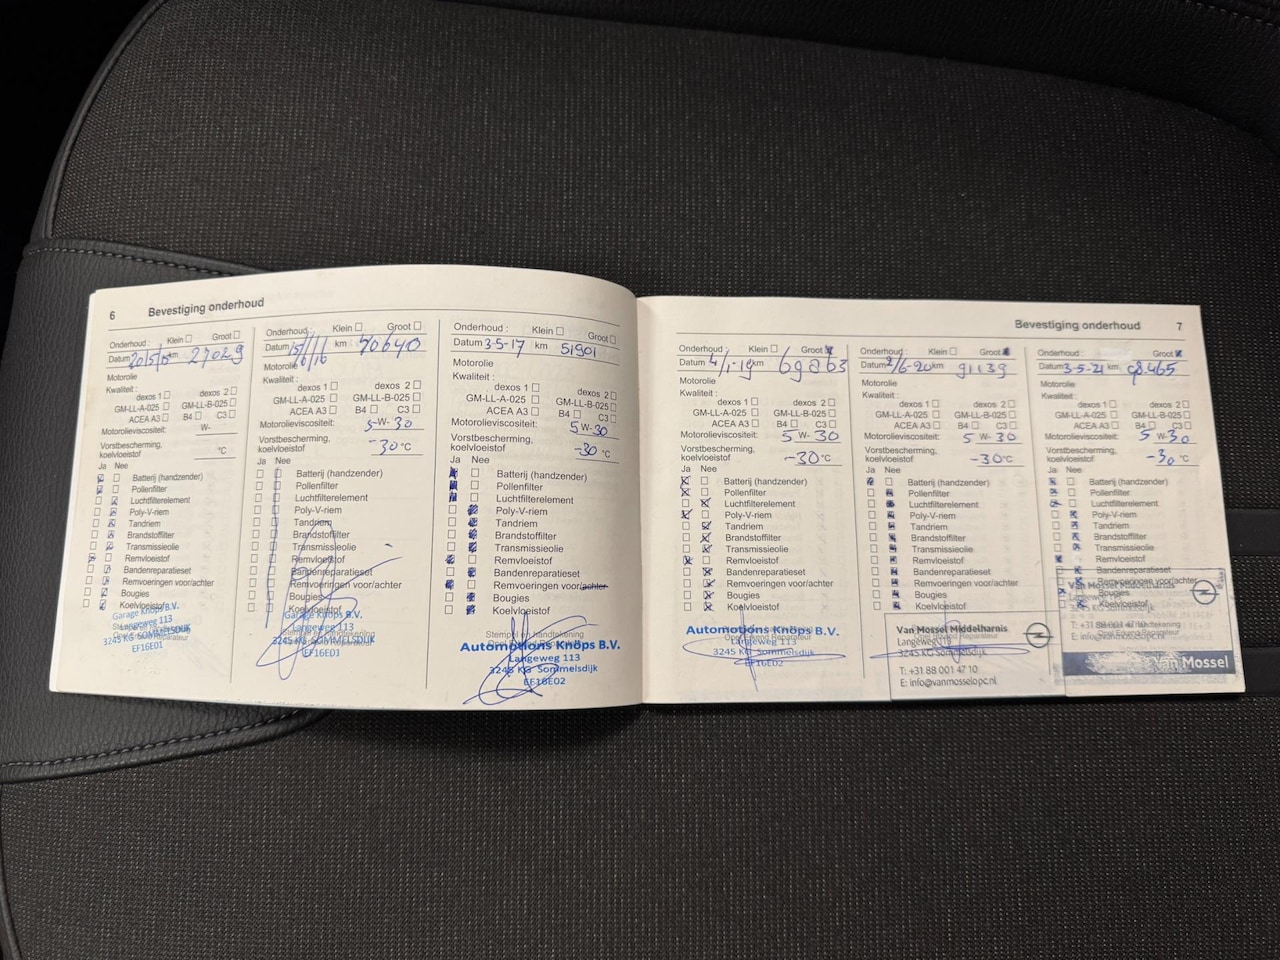 6 Bevestiging onderhoud
Onderhoud : Klein Groot
Datum 20/5/15 km 27029
Motorolie
Kwaliteit :
dexos 1 dexos 2
GM-LL-A-025 GM-LL-B-025
ACEA A3 B4 C3
Motorolieviscositeit: W-
Vorstbescherming,
koelvloeistof °C
Ja Nee
Batterij (handzender)
Pollenfilter
Luchtfilterelement
Poly-V-riem
Tandriem
Brandstoffilter
Transmissieolie
Remvloeistof
Bandenreparatieset
Remvoeringen voor/achter
Bougies
Koelvloeistof
Garage Knöps B.V.
Langeweg 113
3245 KG SOMMELSDIJK
EF16E01
Onderhoud: Klein Groot
Datum 15/6/16 km 40640
Motorolie
Kwaliteit :
dexos 1 dexos 2
GM-LL-A-025 GM-LL-B-025
ACEA A3 B4 C3
Motorolieviscositeit: 5 W- 30
Vorstbescherming,
koelvloeistof -30 °C
Ja Nee
Batterij (handzender)
Pollenfilter
Luchtfilterelement
Poly-V-riem
Tandriem
Brandstoffilter
Transmissieolie
Remvloeistof
Bandenreparatieset
Remvoeringen voor/achter
Bougies
Koelvloeistof
Garage Knöps B.V.
Langeweg 113
3245 KG SOMMELSDIJK
EF16E01
Onderhoud : Klein Groot
Datum 3-5-17 km 51901
Motorolie
Kwaliteit :
dexos 1 dexos 2
GM-LL-A-025 GM-LL-B-025
ACEA A3 B4 C3
Motorolieviscositeit: 5 W-30
Vorstbescherming,
koelvloeistof -30 °C
Ja Nee
Batterij (handzender)
Pollenfilter
Luchtfilterelement
Poly-V-riem
Tandriem
Brandstoffilter
Transmissieolie
Remvloeistof
Bandenreparatieset
Remvoeringen voor/achter
Bougies
Koelvloeistof
Stempel en handtekening
Automotions Knöps B.V.
Langeweg 113
3245 KG Sommelsdijk
EF16E02
Bevestiging onderhoud 7
Onderhoud : Klein Groot
Datum 4/1-19 km 69863
Motorolie
Kwaliteit :
dexos 1 dexos 2
GM-LL-A-025 GM-LL-B-025
ACEA A3 B4 C3
Motorolieviscositeit: 5 W- 30
Vorstbescherming,
koelvloeistof -30 °C
Ja Nee
Batterij (handzender)
Pollenfilter
Luchtfilterelement
Poly-V-riem
Tandriem
Brandstoffilter
Transmissieolie
Remvloeistof
Bandenreparatieset
Remvoeringen voor/achter
Bougies
Koelvloeistof
Automotions Knöps B.V.
Langeweg 113
3245 KG Sommelsdijk
EF16E02
Onderhoud : Klein Groot
Datum 2/6-20 km 91139
Motorolie
Kwaliteit :
dexos 1 dexos 2
GM-LL-A-025 GM-LL-B-025
ACEA A3 B4 C3
Motorolieviscositeit: 5 W- 30
Vorstbescherming,
koelvloeistof -30 °C
Ja Nee
Batterij (handzender)
Pollenfilter
Luchtfilterelement
Poly-V-riem
Tandriem
Brandstoffilter
Transmissieolie
Remvloeistof
Bandenreparatieset
Remvoeringen voor/achter
Bougies
Koelvloeistof
Van Mossel Middelharnis
Langeweg 113
3245 KG Sommelsdijk
T: +31 88 001 47 10
E: info@vanmosselopc.nl
Onderhoud : Klein Groot
Datum 3-5-21 km 98465
Motorolie
Kwaliteit :
dexos 1 dexos 2
GM-LL-A-025 GM-LL-B-025
ACEA A3 B4 C3
Motorolieviscositeit: 5 W-30
Vorstbescherming,
koelvloeistof -30 °C
Ja Nee
Batterij (handzender)
Pollenfilter
Luchtfilterelement
Poly-V-riem
Tandriem
Brandstoffilter
Transmissieolie
Remvloeistof
Bandenreparatieset
Remvoeringen voor/achter
Bougies
Koelvloeistof
Van Mossel Middelharnis
3245 KG Sommelsdijk
T: +31 88 001 47 10
E: info@vanmosselopc.nl
Van Mossel